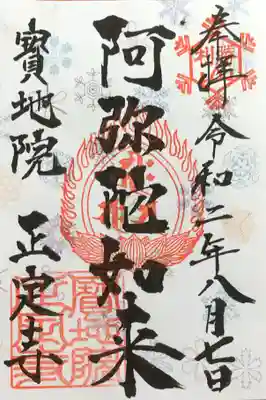 奉拝 令和二年八月七日
阿弥陀如来
寳地院 正定寺